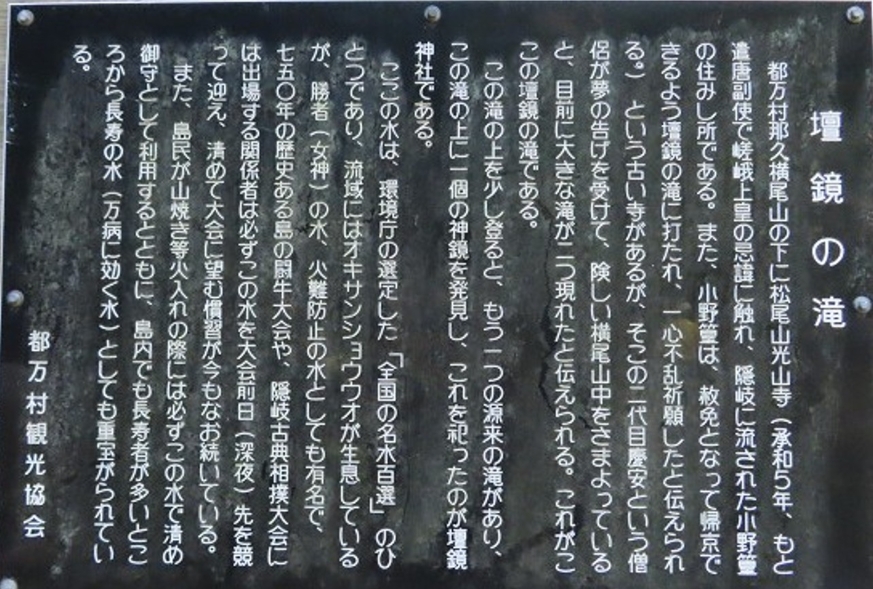 壇鏡の滝
都万村那久横尾山の下に松尾山光山寺(承和5年、もと
遣唐副使で嵯峨上皇の忌諱に触れ、隠岐に流された小野篁
の住みし所である。また、小野篁は、赦免となって帰京で
きるよう壇鏡の滝に打たれ、一心不乱祈願したと伝えられ
る。)という古い寺があるが、そこの二代目慶安という僧
侶が夢の告げを受けて、険しい横尾山中をさまよっている
と、目前に大きな滝が二つ現れたと伝えられる。これがこ
の壇鏡の滝である。
この滝の上を少し登ると、もう一つの源来の滝があり、
この滝の上に一個の神鏡を発見し、これを祀ったのが壇鏡
神社である。
ここの水は、環境庁の選定した「全国の名水百選」のひ
とつであり、流域にはオキサンショウウオが生息している
が、勝者(女神)の水、火難防止の水としても有名で、
七五〇年の歴史ある島の闘牛大会や、隠岐古典相撲大会に
は出場する関係者は必ずこの水を大会前日(深夜)先を競
って迎え、清めて大会に望む慣習が今もなお続いている。
また、島民が山焼き等火入れの際には必ずこの水で清め
御守として利用するとともに、島内でも長寿者が多いとこ
ろから長寿の水(万病に効く水)としても重宝がられてい
る。
都万村観光協会